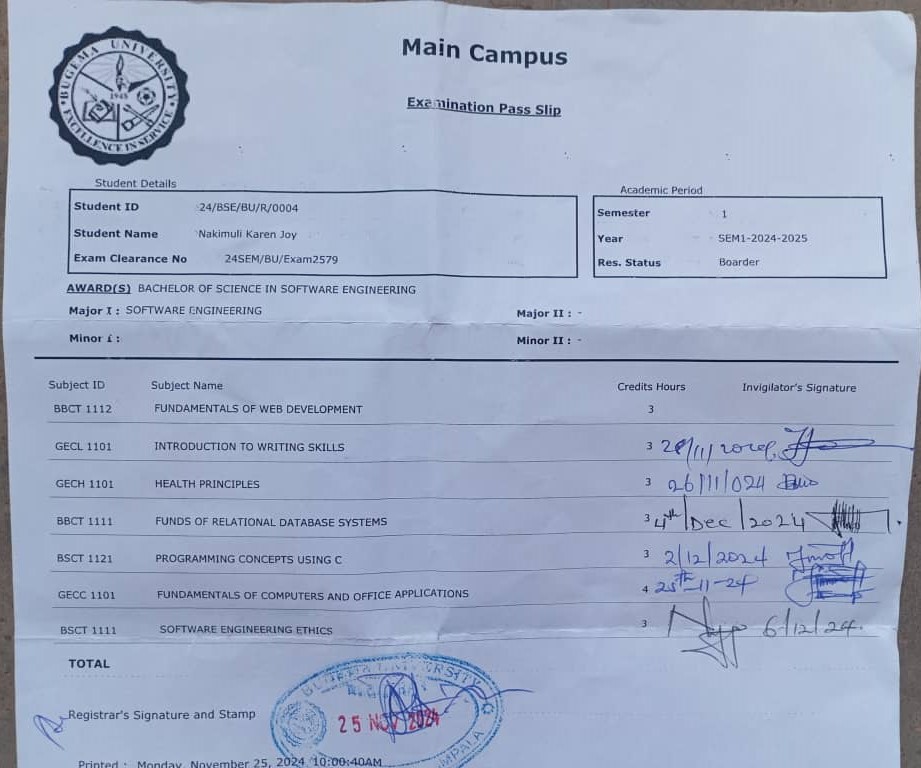 BUGEMA UNIVERSITY
1948
EXCELLENCE IN SERVICE
Main Campus
Examination Pass Slip
Student Details
Academic Period
Student ID 24/BSE/BU/R/0004
Semester 1
Student Name Nakimuli Karen Joy
Year SEM1-2024-2025
Exam Clearance No 24SEM/BU/Exam2579
Res. Status Boarder
AWARD(S) BACHELOR OF SCIENCE IN SOFTWARE ENGINEERING
Major I : SOFTWARE ENGINEERING Major II : -
Minor I : Minor II : -
Subject ID Subject Name Credits Hours Invigilator's Signature
BBCT 1112 FUNDAMENTALS OF WEB DEVELOPMENT 3
GECL 1101 INTRODUCTION TO WRITING SKILLS 3
GECH 1101 HEALTH PRINCIPLES 3 26/11/024
BBCT 1111 FUNDS OF RELATIONAL DATABASE SYSTEMS 3 4th/Dec/2024
BSCT 1121 PROGRAMMING CONCEPTS USING C 3 2/12/2024
GECC 1101 FUNDAMENTALS OF COMPUTERS AND OFFICE APPLICATIONS 4 25th-11-24
BSCT 1111 SOFTWARE ENGINEERING ETHICS 3 6/12/24.
TOTAL
BUGEMA UNIVERSITY
Registrar's Signature and Stamp 25 NOV 2024
Printed : Monday, November 25, 2024 10:00:40AM